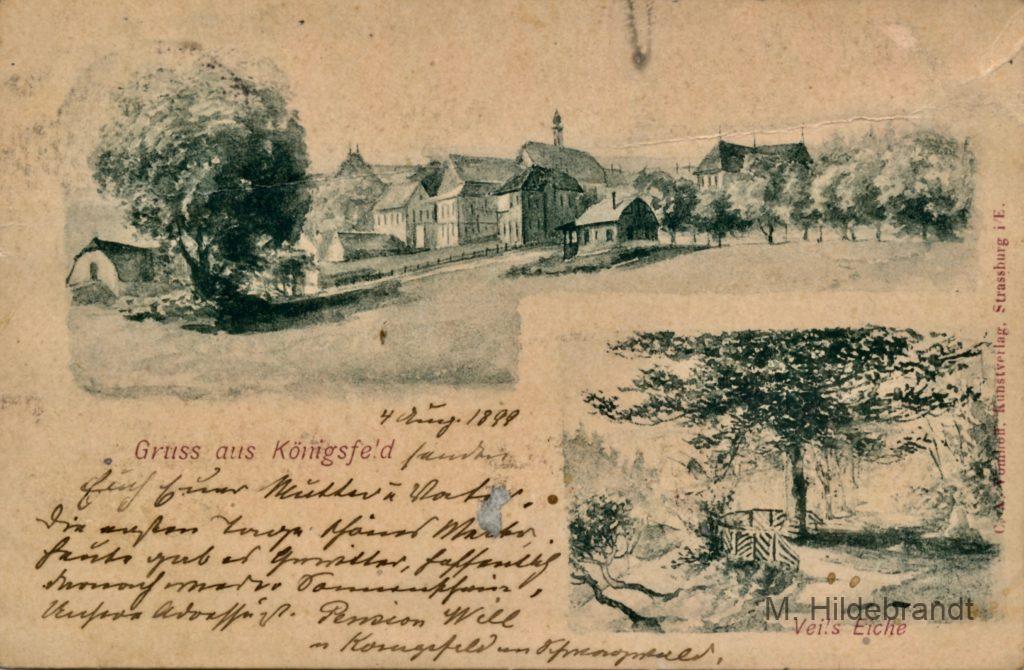 4 Aug. 1899
Gruss aus Königsfeld senden
Euch Euer Mutter u Vater.
Die ersten Tage schönes Wetter.
heute gab es Gewitter, hoffentlich
darnach wieder Sonnenschein,
Unsere Adresse ist. Pension Will
in Königsfeld im Schwarzwald.
Veil's Eiche
M. Hildebrandt
Kunstverlag, Strassburg i/E.